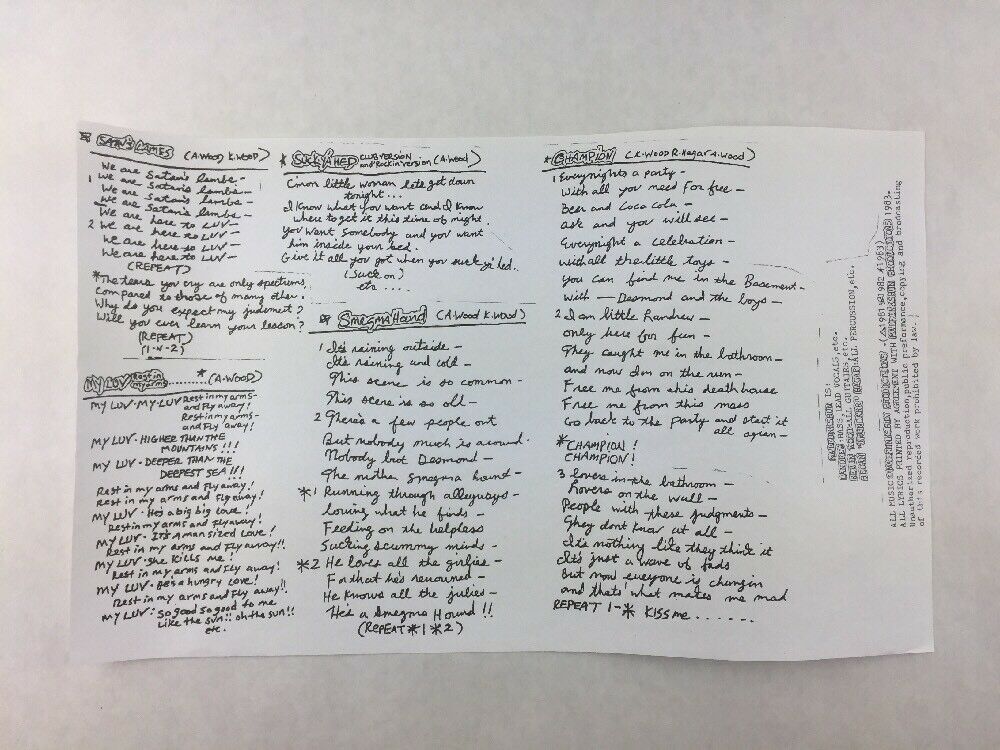 SATAN'S LAMBS (A.WOOD K.WOOD)
We are Satan's lambs -
1 We are Satan's lambs -
We are Satan's lambs -
We are Satan's lambs -
We are here to LUV -
2 We are here to LUV -
We are here to LUV -
We are here to LUV -
(REPEAT)
*The tears you cry are only spectrums,
Compared to those of many other.
Why do you expect my judgment?
Will you ever learn your lesson?
(REPEAT)
(1-4-2)
MY LUV Rest in my arms .......... * (A.WOOD)
MY LUV-MY LUV Rest in my arms-
and Fly away!
Rest in my arms-
and Fly away!
MY LUV-HIGHER THAN THE
MOUNTAINS!!!
MY LUV-DEEPER THAN THE
DEEPEST SEA!!!
Rest in my arms and Fly away!
Rest in my arms and Fly away!
MY LUV-He's a big big love!
Rest in my arms and Fly away!
MY LUV-It's A man sized Love!
Rest in my arms and Fly away!!
MY LUV-She KILLS me!
Rest in my arms and Fly away!
MY LUV-He's a hungry Love!
Rest in my arms and Fly away!!
MY LUV: So good so good to me
Like the sun!! oh the sun!!
etc.
* SUCK YA HED CLUB VERSION
and Rockin version (A.Wood)
C'mon little woman lets get down
tonight...
I know what you want and I know
where to get it this time of night.
You want somebody and you want
him inside your bed.
Give it all you got when you suck ya' hed.
(Suck on)
etc ...
Smegma Hound (A.Wood K.Wood)
1 It's raining outside -
It's raining and cold -
This scene is so common -
This scene is so old -
2 There's a few people out
But nobody much is around.
Nobody but Desmond -
The mother Smegma hound -
*1 Running through alleyways -
loving what he finds -
Feeding on the helpless
Sucking scummy minds -
*2 He loves all the girlies -
For that he's renowned -
He knows all the julies -
He's a Smegma Hound!!
(REPEAT *1 *2)
*CHAMPION (K.WOOD R.Hagar A.Wood)
1 Everynights a party -
With all you need For free -
Beer and Coca Cola -
ask and you will see -
Everynight a celebration -
with all the little toys -
You can find me in the Basement -
with - Desmond and the boys -
2 I am little Randrew -
only here for fun -
They caught me in the bathroom -
and now I'm on the run -
Free me from this deathhouse
Free me from this mess
Go back to the party and start it
all agian -
*CHAMPION!
CHAMPION!
3 Lovers in the bathroom -
hovers on the wall -
People with these judgments -
They dont know at all -
It's nothing like they think it
It's just a wave of fads
But now everyone is changin
and thats what makes me mad
REPEAT 1-* KISS me......
IS:
BASS, LEAD VOCALS, etc.
ALL GUITARS, etc.
PERCUSSION, etc.
ALL MUSIC (1981 1982 1983)
ALL LYRICS PRINTED BY AGREEMENT WITH 1983.
Unauthorized reproduction, public preformance, copying and brodcasting
of this recorded work prohibited by law.!